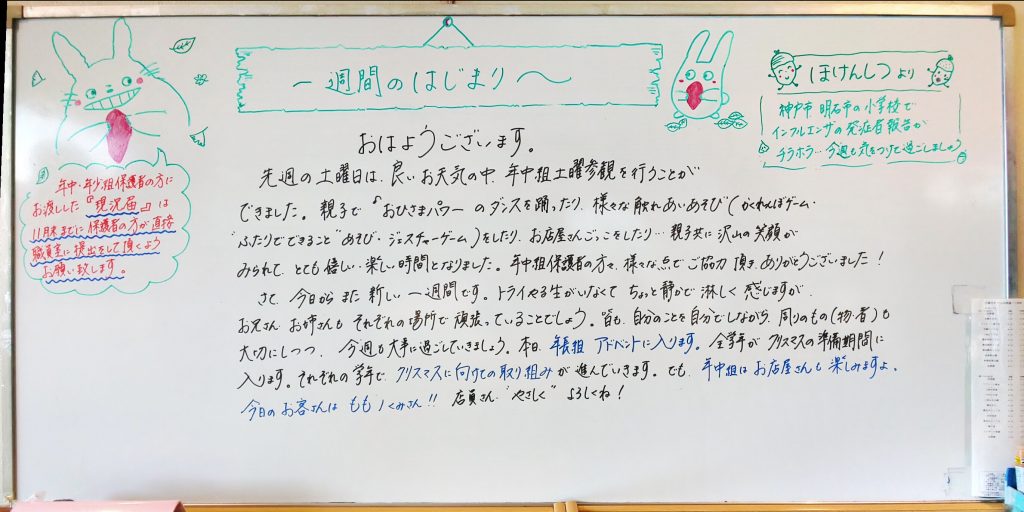 一週間のはじまり〜
ほけんしつより
神戸市 明石市の小学校で
インフルエンザの発症者報告が
チラホラ…今週も気をつけて過ごしましょう
おはようございます。
先週の土曜日は、良いお天気の中、年中組土曜参観を行うことが
できました。親子で『おひさまパワー』のダンスを踊ったり、様々な触れあいあそび(かくれんぼゲーム・
"ふたりでできること"あそび・ジェスチャーゲーム)をしたり、お店屋さんごっこをしたり…親子共に沢山の笑顔が
みられて、とても嬉しい楽しい時間となりました。年中組保護者の方々、様々な点でご協力頂き、ありがとうございました!
さて、今日からまた新しい一週間です。トライやる生がいなくてちょっと静かで淋しく感じますが、
お兄さんお姉さんもそれぞれの場所で頑張っていることでしょう。皆も、自分のことを自分でしながら、周りのもの(物・者)も
大切にしつつ、今週も大事に過ごしていきましょう。本日、年長組アドベントに入ります。全学年がクリスマスの準備期間に
入ります。それぞれの学年で、クリスマスに向けての取り組みが進んでいきます。でも、年中組はお店屋さんも楽しみますよ。
今日のお客さんはももノくみさん!! 店員さん、"やさしく"よろしくね!
年中・年少組保護者の方に
お渡しした『現況届』は
11月末までに保護者の方が直接
職員室に提出をして頂くよう
お願い致します。